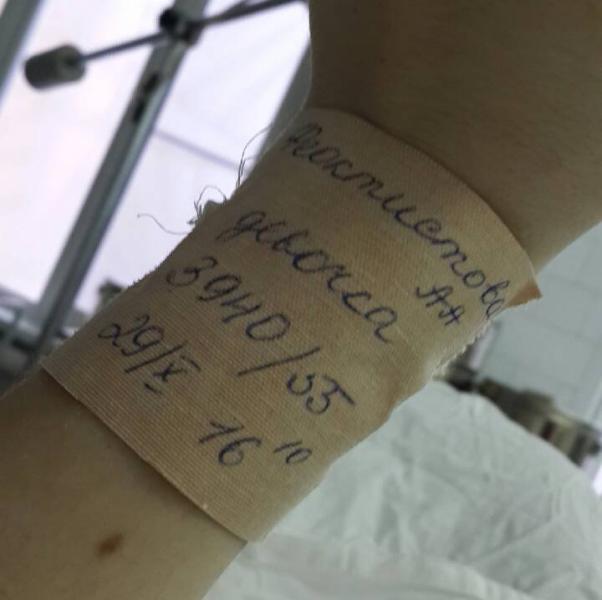 Феоктистова
АА
девочка
3940/55
29/X 16¹⁰